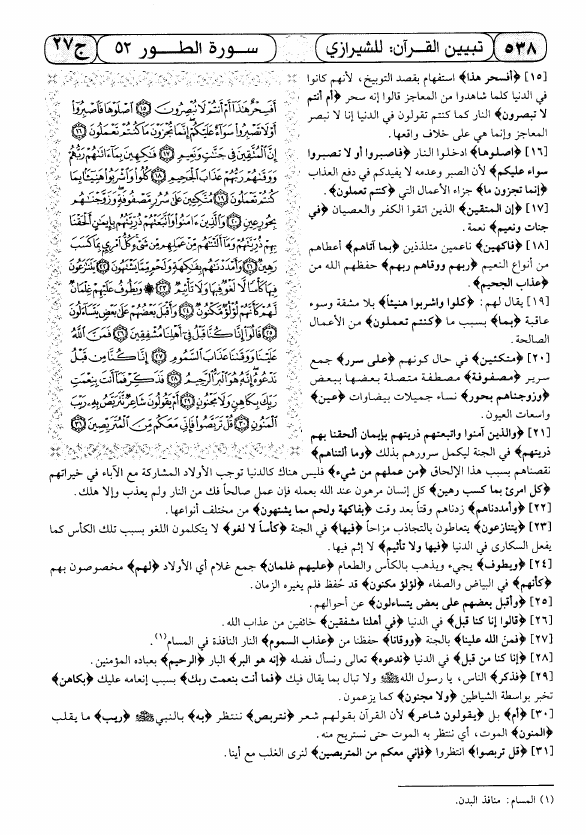 ٥٣٨
تبيين القرآن: للشيرازي
سورة الطور ٥٢
ج٢٧
[١٥] ﴿أفسحر هذا﴾ استفهام بقصد التوبيخ، لأنهم كانوا
في الدنيا كلما شاهدوا من المعاجز قالوا إنه سحر ﴿أم أنتم
لا تبصرون﴾ النار كما كنتم تقولون في الدنيا إنا لا نبصر
المعاجز وإنما هي على خلاف واقعها.
[١٦] ﴿اصلوها﴾ ادخلوا النار ﴿فاصبروا أو لا تصبروا
سواء عليكم﴾ لأن الصبر وعدمه لا يفيدكم في دفع العذاب
﴿إنما تجزون ما﴾ جزاء الأعمال التي ﴿كنتم تعملون﴾.
[١٧] ﴿إن المتقين﴾ الذين اتقوا الكفر والعصيان ﴿في
جنات ونعيم﴾ نعمة.
[١٨] ﴿فاكهين﴾ ناعمين متلذذين ﴿بما آتاهم﴾ أعطاهم
من أنواع النعيم ﴿ربهم ووقاهم ربهم﴾ حفظهم الله من
﴿عذاب الجحيم﴾.
[١٩] يقال لهم: ﴿كلوا واشربوا هنيئاً﴾ بلا مشقة وسوء
عاقبة ﴿بما﴾ بسبب ما ﴿كنتم تعملون﴾ من الأعمال
الصالحة.
[٢٠] ﴿متكئين﴾ في حال كونهم ﴿على سرر﴾ جمع
سرير ﴿مصفوفة﴾ مصطفة متصلة بعضها ببعض
﴿وزوجناهم بحور﴾ نساء جميلات بيضاوات ﴿عين﴾
واسعات العيون.
[٢١] ﴿والذين آمنوا واتبعتهم ذريتهم بإيمان ألحقنا بهم
ذريتهم﴾ في الجنة ليكمل سرورهم بذلك ﴿وما ألتناهم﴾
أَفَسِحْرٌ هَٰذَا أَمْ أَنتُمْ لَا تُبْصِرُونَ ١٥ اصْلَوْهَا فَاصْبِرُوا
أَوْ لَا تَصْبِرُوا سَوَاءٌ عَلَيْكُمْ إِنَّمَا تُجْزَوْنَ مَا كُنتُمْ تَعْمَلُونَ ١٦
إِنَّ الْمُتَّقِينَ فِي جَنَّاتٍ وَنَعِيمٍ ١٧ فَاكِهِينَ بِمَا آتَاهُمْ رَبُّهُمْ
وَوَقَاهُمْ رَبُّهُمْ عَذَابَ الْجَحِيمِ ١٨ كُلُوا وَاشْرَبُوا هَنِيئًا بِمَا
كُنتُمْ تَعْمَلُونَ ١٩ مُتَّكِئِينَ عَلَىٰ سُرُرٍ مَّصْفُوفَةٍ وَزَوَّجْنَاهُم
بِحُورٍ عِينٍ ٢٠ وَالَّذِينَ آمَنُوا وَاتَّبَعَتْهُمْ ذُرِّيَّتُهُم بِإِيمَانٍ أَلْحَقْنَا
بِهِمْ ذُرِّيَّتَهُمْ وَمَا أَلَتْنَاهُم مِّنْ عَمَلِهِم مِّن شَيْءٍ كُلُّ امْرِئٍ بِمَا كَسَبَ
رَهِينٌ ٢١ وَأَمْدَدْنَاهُم بِفَاكِهَةٍ وَلَحْمٍ مِّمَّا يَشْتَهُونَ ٢٢ يَتَنَازَعُونَ
فِيهَا كَأْسًا لَّا لَغْوٌ فِيهَا وَلَا تَأْثِيمٌ ٢٣ وَيَطُوفُ عَلَيْهِمْ غِلْمَانٌ
لَّهُمْ كَأَنَّهُمْ لُؤْلُؤٌ مَّكْنُونٌ ٢٤ وَأَقْبَلَ بَعْضُهُمْ عَلَىٰ بَعْضٍ يَتَسَاءَلُونَ
٢٥ قَالُوا إِنَّا كُنَّا قَبْلُ فِي أَهْلِنَا مُشْفِقِينَ ٢٦ فَمَنَّ اللَّهُ
عَلَيْنَا وَوَقَانَا عَذَابَ السَّمُومِ ٢٧ إِنَّا كُنَّا مِن قَبْلُ
نَدْعُوهُ إِنَّهُ هُوَ الْبَرُّ الرَّحِيمُ ٢٨ فَذَكِّرْ فَمَا أَنتَ بِنِعْمَتِ
رَبِّكَ بِكَاهِنٍ وَلَا مَجْنُونٍ ٢٩ أَمْ يَقُولُونَ شَاعِرٌ نَّتَرَبَّصُ بِهِ رَيْبَ
الْمَنُونِ ٣٠ قُلْ تَرَبَّصُوا فَإِنِّي مَعَكُم مِّنَ الْمُتَرَبِّصِينَ ٣١
نقصناهم بسبب هذا الإلحاق ﴿من عملهم من شيء﴾ فليس هناك كالدنيا توجب الأولاد المشاركة مع الآباء في خيراتهم
﴿كل امرئ بما كسب رهين﴾ كل إنسان مرهون عند الله بعمله فإن عمل صالحاً فك من النار ولم يعذب وإلا هلك.
[٢٢] ﴿وأمددناهم﴾ زدناهم وقتاً بعد وقت ﴿بفاكهة ولحم مما يشتهون﴾ من مختلف أنواعها.
[٢٣] ﴿يتنازعون﴾ يتعاطون بالتجاذب مزاحاً ﴿فيها﴾ في الجنة ﴿كأساً لا لغو﴾ لا يتكلمون اللغو بسبب تلك الكأس كما
يفعل السكارى في الدنيا ﴿فيها ولا تأثيم﴾ لا إثم فيها.
[٢٤] ﴿ويطوف﴾ يجيء ويذهب بالكأس والطعام ﴿عليهم غلمان﴾ جمع غلام أي الأولاد ﴿لهم﴾ مخصوصون بهم
﴿كأنهم﴾ في البياض والصفاء ﴿لؤلؤ مكنون﴾ قد حُفظ فلم يغيره الزمان.
[٢٥] ﴿وأقبل بعضهم على بعض يتساءلون﴾ عن أحوالهم.
[٢٦] ﴿قالوا إنا كنا قبل﴾ في الدنيا ﴿في أهلنا مشفقين﴾ خائفين من عذاب الله.
[٢٧] ﴿فمنّ الله علينا﴾ بالجنة ﴿ووقانا﴾ حفظنا من ﴿عذاب السموم﴾ النار النافذة في المسام(١).
[٢٨] ﴿إنا كنا من قبل﴾ في الدنيا ﴿ندعوه﴾ تعالى ونسأل فضله ﴿إنه هو البر﴾ البار ﴿الرحيم﴾ بعباده المؤمنين.
[٢٩] ﴿فذكر﴾ الناس، يا رسول الله ﷺ ولا تبال بما يقال فيك ﴿فما أنت بنعمت ربك﴾ بسبب إنعامه عليك ﴿بكاهن﴾
تخبر بواسطة الشياطين ﴿ولا مجنون﴾ كما يزعمون.
[٣٠] ﴿أم﴾ بل ﴿يقولون شاعر﴾ لأن القرآن بقولهم شعر ﴿نتربص﴾ ننتظر ﴿به﴾ بالنبي ﷺ ﴿ريب﴾ ما يقلب
﴿المنون﴾ الموت، أي ننتظر به الموت حتى نستريح منه.
[٣١] ﴿قل تربصوا﴾ انتظروا ﴿فإني معكم من المتربصين﴾ لنرى الغلب مع أينا.
(١) المسام: منافذ البدن.